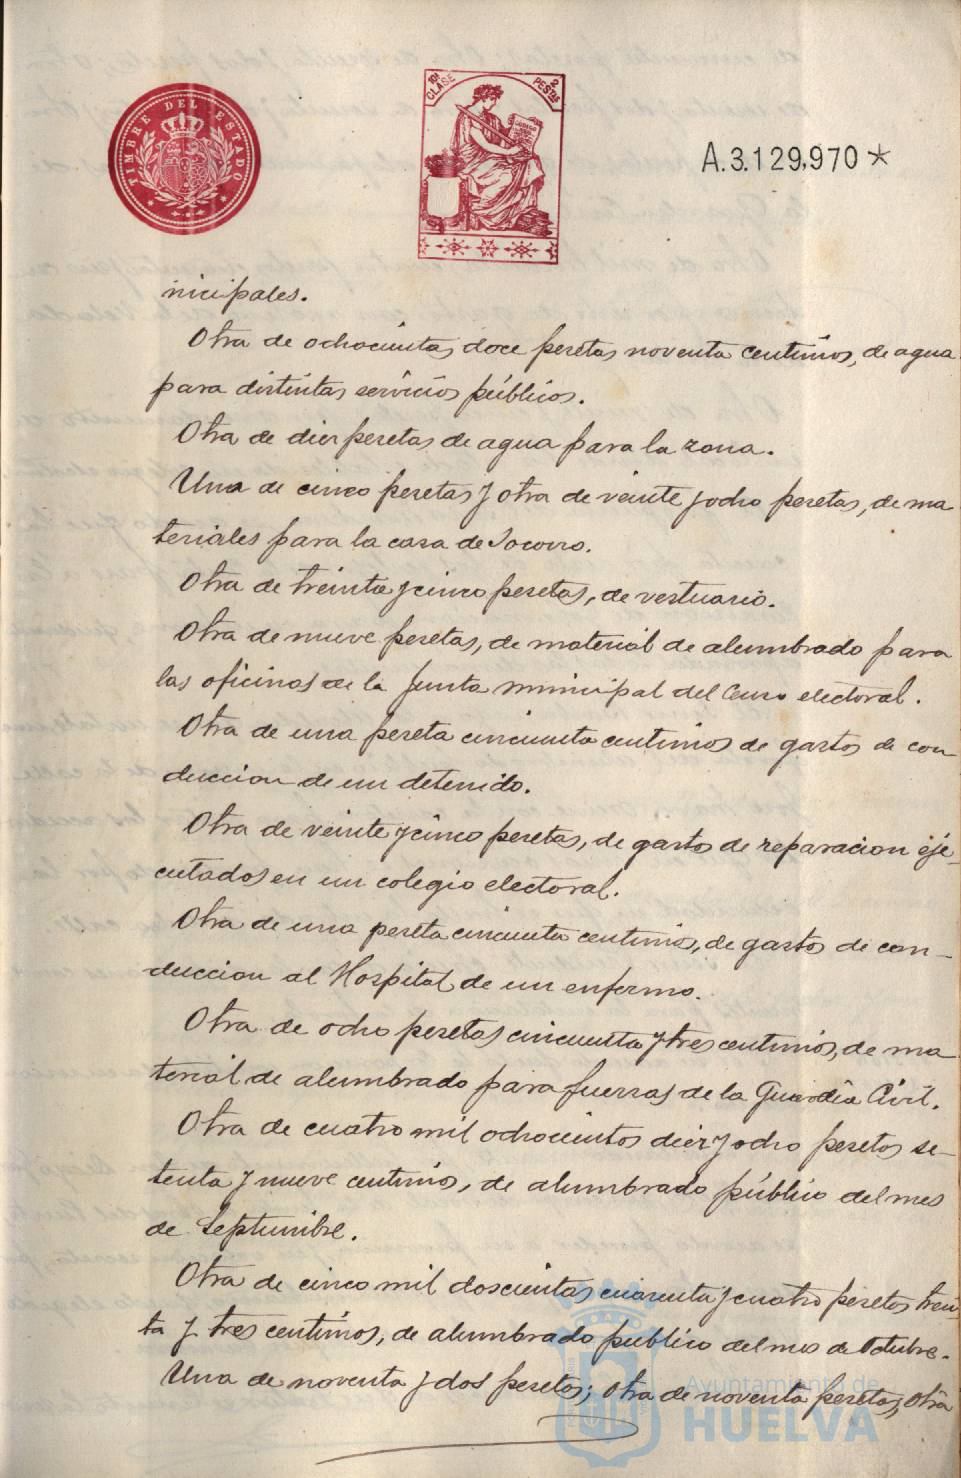 TIMBRE DEL ESTADO
10ª CLASE
2 PESTAS
A.3.129,970*
nicipales.
Otra de ochocientas doce pesetas noventa centimos, de agua
para distintas servicios públicos.
Otra de diez pesetas de agua para la zona.
Una de cinco pesetas y otra de veinte y ocho pesetas, de ma
teriales para la casa de Socorro.
Otra de treinta y cinco pesetas, de vestuario.
Otra de nueve pesetas, de material de alumbrado para
las oficinas de la Junta municipal del Censo electoral.
Otra de una peseta cincuenta centimos de gastos de con
duccion de un detenido.
Otra de veinte y cinco pesetas, de gastos de reparacion eje-
cutados en un colegio electoral.
Otra de una peseta cincuenta centimos, de gastos de con-
duccion al Hospital de un enfermo.
Otra de ocho pesetas cincuenta y tres centimos, de ma
terial de alumbrado para fuerzas de la Guardia Civil.
Otra de cuatro mil ochocientos diez y ocho pesetas se-
tenta y nueve centimos, de alumbrado público del mes
de Septiembre.
Otra de cinco mil doscientas cuarenta y cuatro pesetas trein-
ta y tres centimos, de alumbrado publico del mes de Octubre.
Una de noventa y dos pesetas; otra de noventa pesetas; otra
Ayuntamiento de
HUELVA